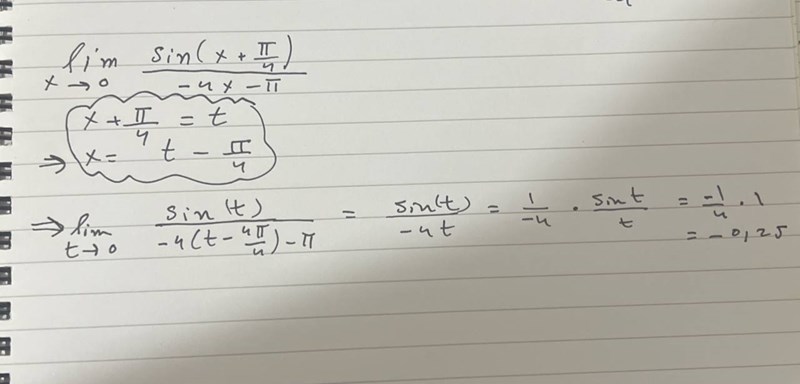 lim x→0 sin(x + π/4) / -4x - π
x + π/4 = t
⇒ x = t - π/4
⇒ lim t→0 sin(t) / -4(t - 4π/4) - π = sin(t) / -4t = 1/-4 · sin t / t = -1/4 · 1
= -0,25